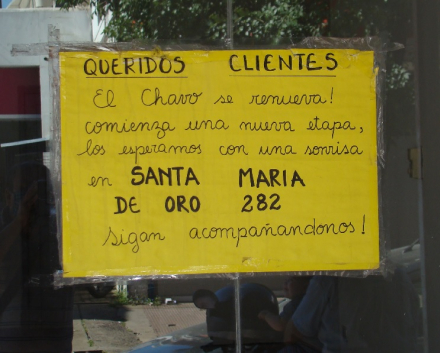 QUERIDOS CLIENTES
El Chavo se renueva!
comienza una nueva etapa,
los esperamos con una sonrisa
en SANTA MARIA
DE ORO 282
sigan acompañandonos!